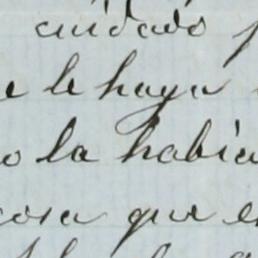 cuidado
e le haya
o la habia
cosa que e